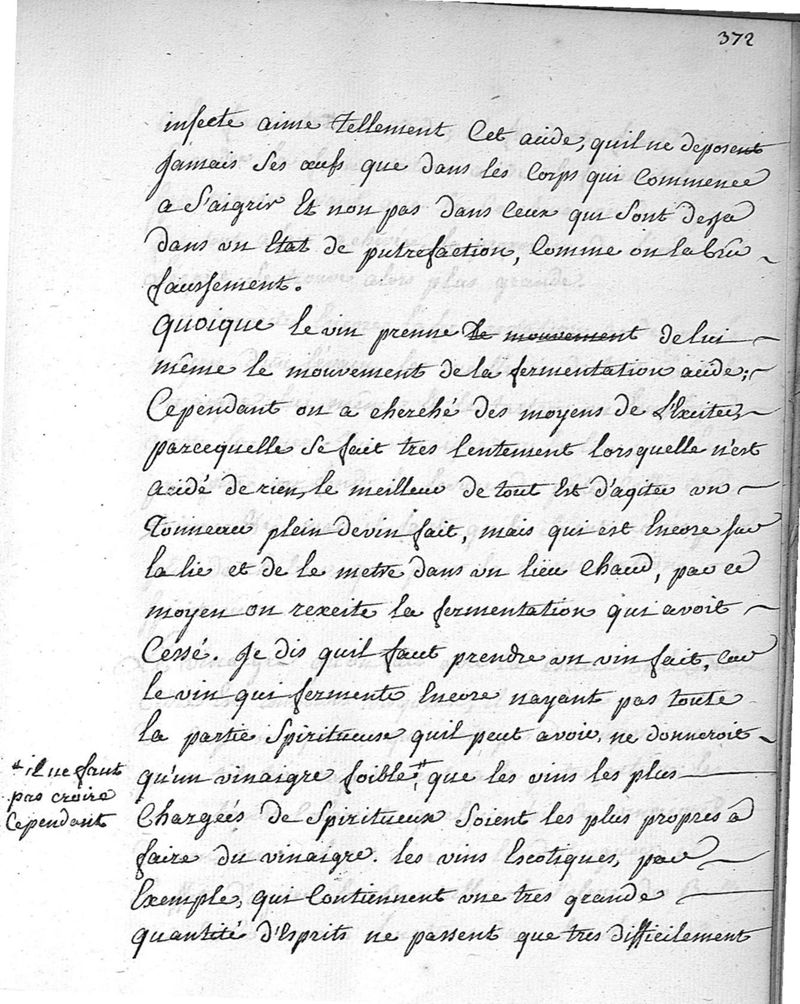 372
infecte aime tellement Cet acide, quil ne deposent
Jamais ses œufs que dans les Corps qui Commence
a S'aigrir Et non pas dans Ceux qui sont deja
dans un Etat de putrefaction, Comme on la Cru
faussement.
Quoique le vin prenne le mouvement de lui
même le mouvement de la fermentation acide;
Cependant on a cherché des moyens de L'Exciter,
parcequelle se fait tres lentement lorsquelle n'est
aidé de rien, le meilleur de tout Est d'agiter un
Tonneau plein de vin fait, mais qui est Encore sur
la lie et de le metre dans un lieu Chaud, par ce
moyen on rexcite la fermentation qui avoit
Cessé. Je dis quil faut prendre un vin fait, car
le vin qui fermente Encore nayant pas toute
la partie Spiritueuse quil peut avoir, ne donneroit
* il ne faut
pas croire
Cependant
qu'un vinaigre foible, # que les vins les plus
Chargeés de Spiritueux soient les plus propres a
faire du vinaigre. les vins Exotiques, par
Exemple, qui Contiennent une tres grande
quantité d'Esprits ne passent que tres difficilement